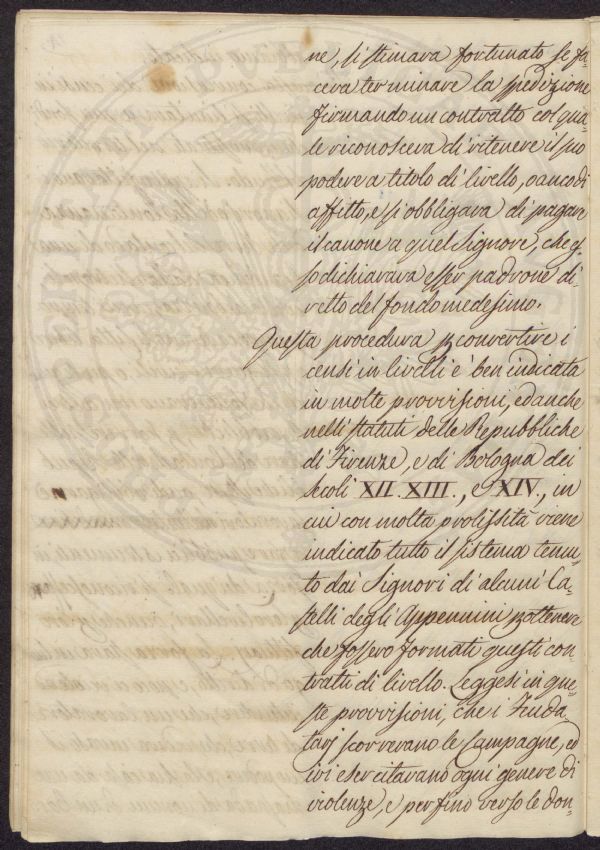 ne, si stimava fortunato se fa-
ceva terminare la spedizione
firmando un contratto col qua-
le riconosceva di ritenere il suo
podere a titolo di livello, o anco di
affitto, e si obbligava di pagare
il canone a quel Signore, che
so dichiarava esser padrone di-
retto del fondo medesimo.
Questa procedura p convertire i
censi in livelli è ben indicata
in molte provvisioni, ed anche
nelli statuti delle Repubbliche
di Firenze, e di Bologna dei
secoli XII. XIII., e XIV., in
cui con molta prolissità viene
indicato tutto il sistema tenu-
to dai Signori di alcuni Ca-
stelli degli Appennini p ottenere
che fossero formati questi con-
tratti di livello. Leggesi in que-
ste provvisioni, che i Feuda-
tarj scorrevano le Campagne, ed
ivi esercitavano ogni genere di
violenze, e perfino verso le don-